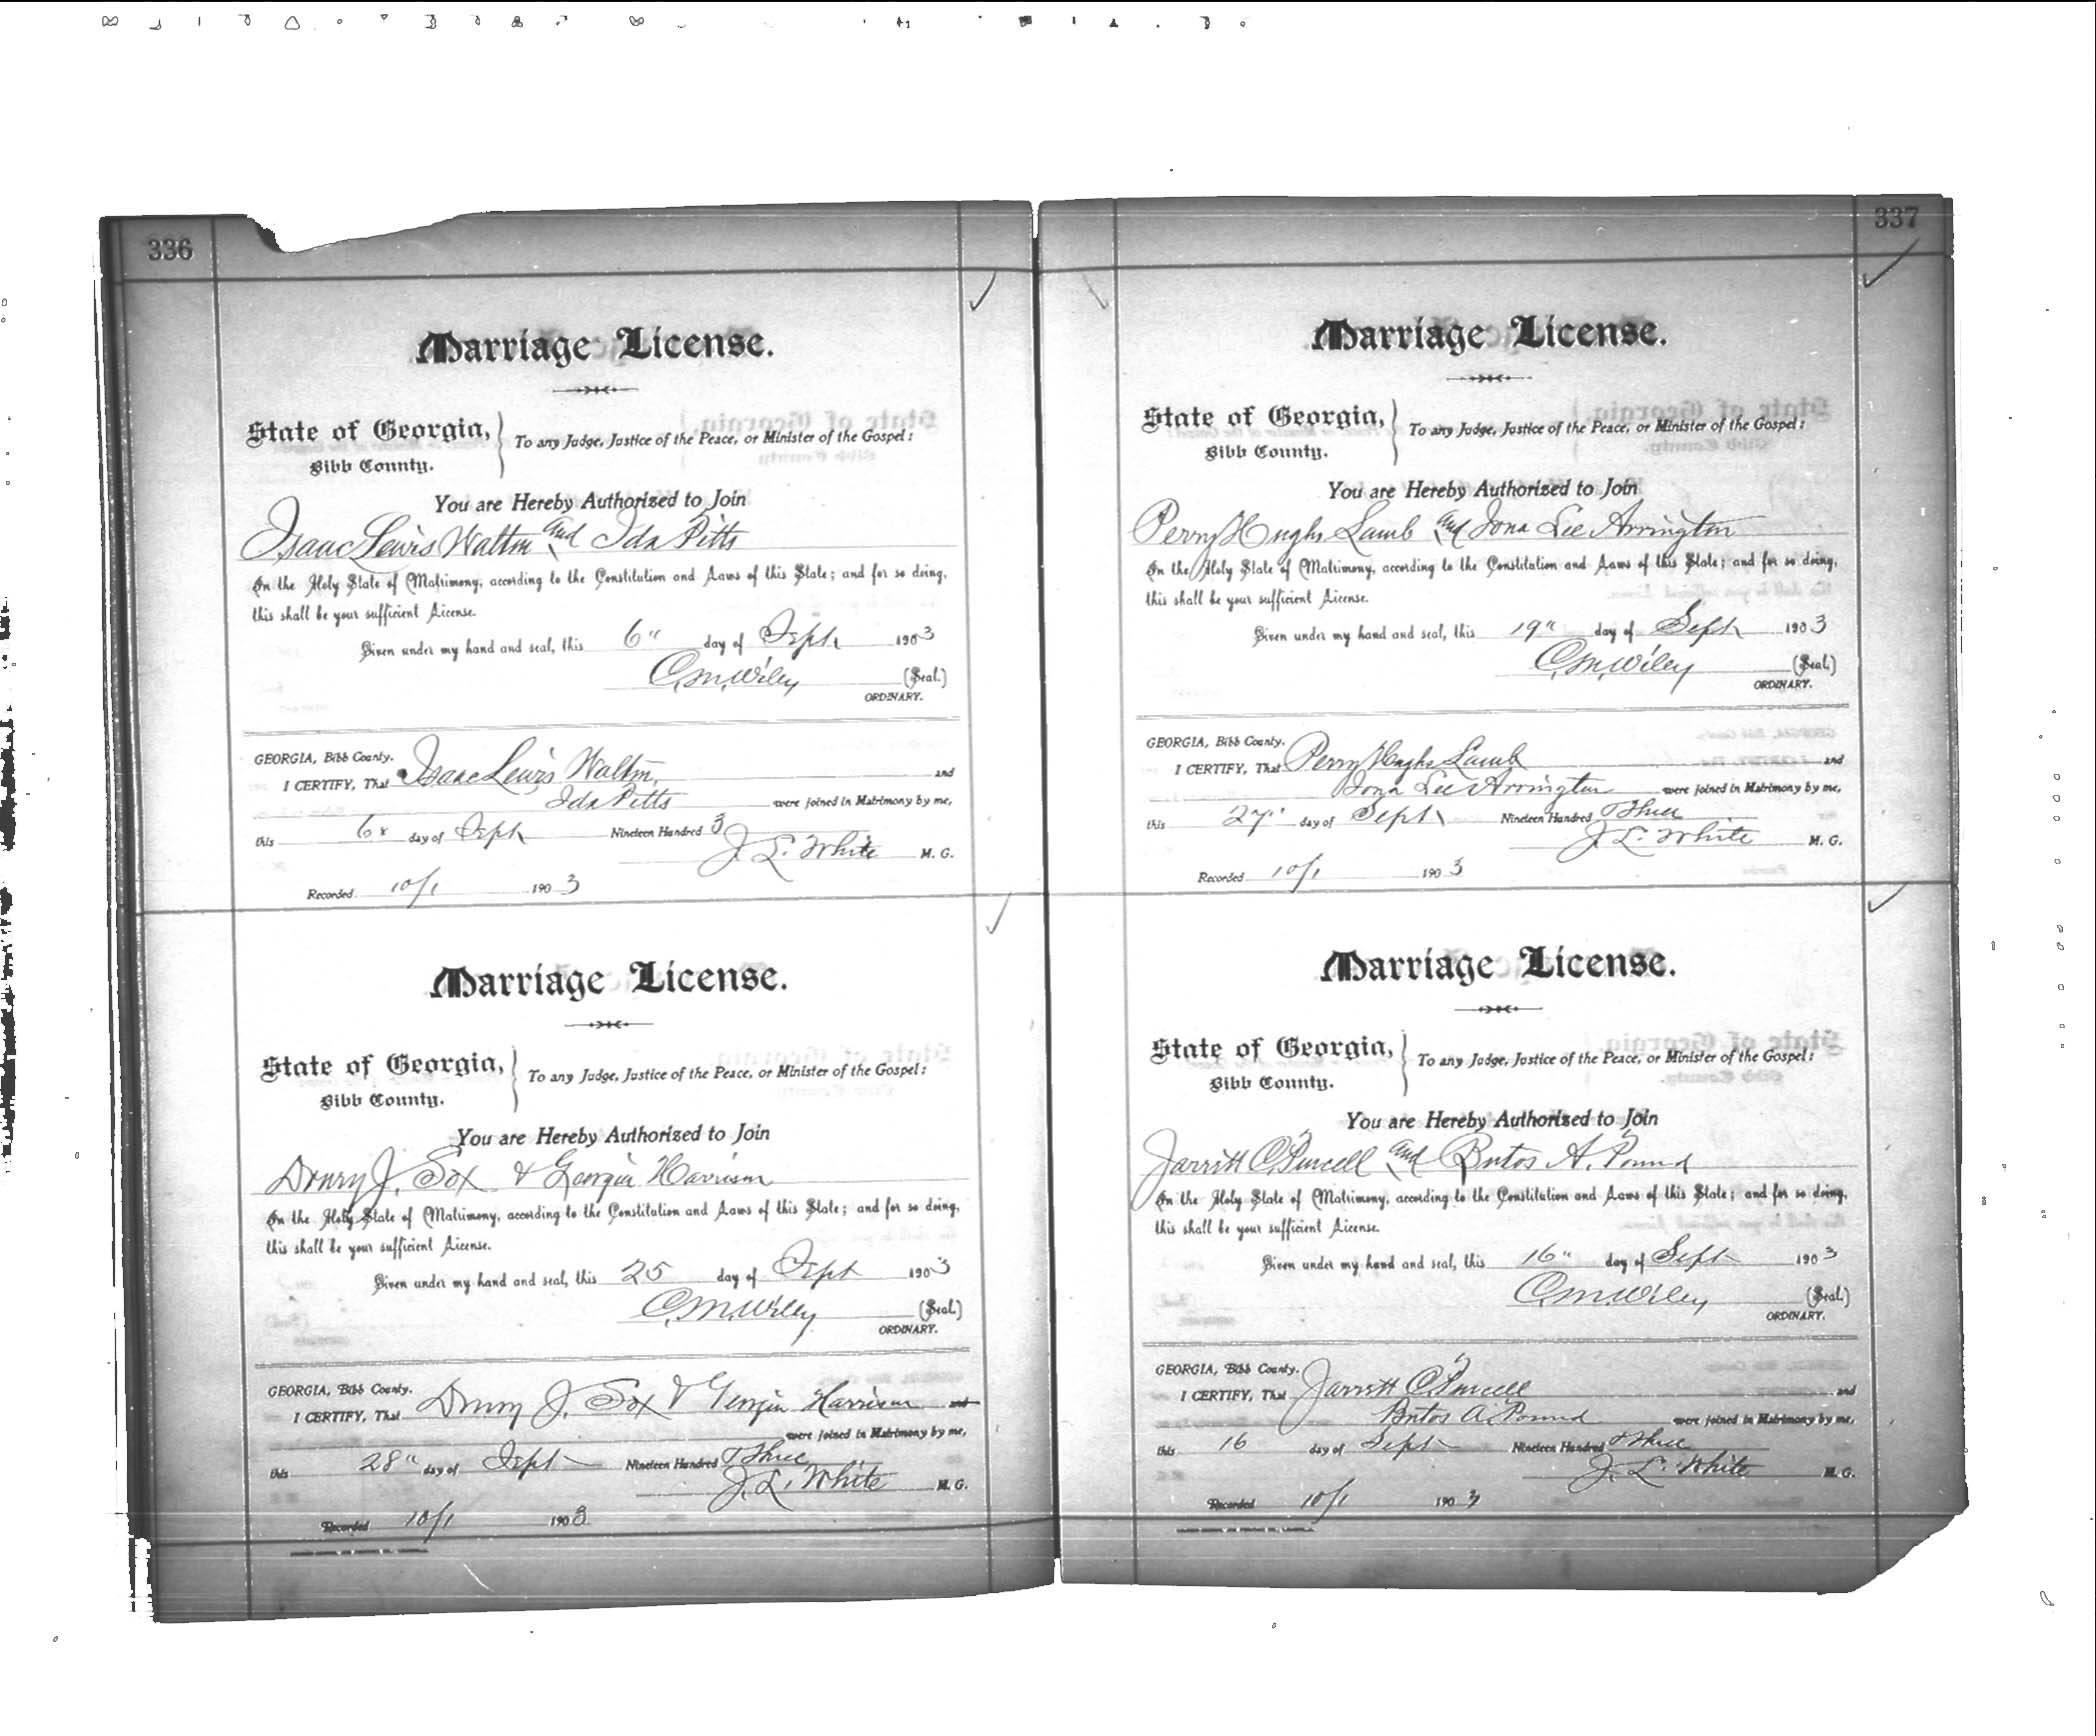 336
Marriage License.
State of Georgia, To any Judge, Justice of the Peace, or Minister of the Gospel:
Bibb County.
You are Hereby Authorized to Join
Isaac Lewis Walton and Ida Pitts
In the Holy State of Matrimony, according to the Constitution and Laws of this State; and for so doing,
this shall be your sufficient License.
Given under my hand and seal, this 6" day of Sept 1903
C. M. Wiley (Seal.)
ORDINARY.
GEORGIA, Bibb County.
I CERTIFY, That Isaac Lewis Walton, and
Ida Pitts were joined in Matrimony by me,
this 6" day of Sept Nineteen Hundred 3
J. L. White M. G.
Recorded 10/1 1903
Marriage License.
State of Georgia, To any Judge, Justice of the Peace, or Minister of the Gospel:
Bibb County.
You are Hereby Authorized to Join
Drury J. Sox & Georgia Harrison
In the Holy State of Matrimony, according to the Constitution and Laws of this State; and for so doing,
this shall be your sufficient License.
Given under my hand and seal, this 25 day of Sept 1903
C. M. Wiley (Seal.)
ORDINARY.
GEORGIA, Bibb County.
I CERTIFY, That Drury J. Sox & Georgia Harrison and
were joined in Matrimony by me,
this 28" day of Sept Nineteen Hundred Three
J. L. White M. G.
Recorded 10/1 1903
337
Marriage License.
State of Georgia, To any Judge, Justice of the Peace, or Minister of the Gospel:
Bibb County.
You are Hereby Authorized to Join
Perry Hughs Lamb and Iona Lee Arrington
In the Holy State of Matrimony, according to the Constitution and Laws of this State; and for so doing,
this shall be your sufficient License.
Given under my hand and seal, this 19" day of Sept 1903
C. M. Wiley (Seal.)
ORDINARY.
GEORGIA, Bibb County.
I CERTIFY, That Perry Hughs Lamb and
Iona Lee Arrington were joined in Matrimony by me,
this 27" day of Sept Nineteen Hundred Three
J. L. White M. G.
Recorded 10/1 1903
Marriage License.
State of Georgia, To any Judge, Justice of the Peace, or Minister of the Gospel:
Bibb County.
You are Hereby Authorized to Join
Jarritt C. Purcell and A. Pound
In the Holy State of Matrimony, according to the Constitution and Laws of this State; and for so doing,
this shall be your sufficient License.
Given under my hand and seal, this 16" day of Sept 1903
C. M. Wiley (Seal.)
ORDINARY.
GEORGIA, Bibb County.
I CERTIFY, That Jarritt C. Purcell and
A. Pound were joined in Matrimony by me,
this 16 day of Sept Nineteen Hundred Three
J. L. White M. G.
Recorded 10/1 1903